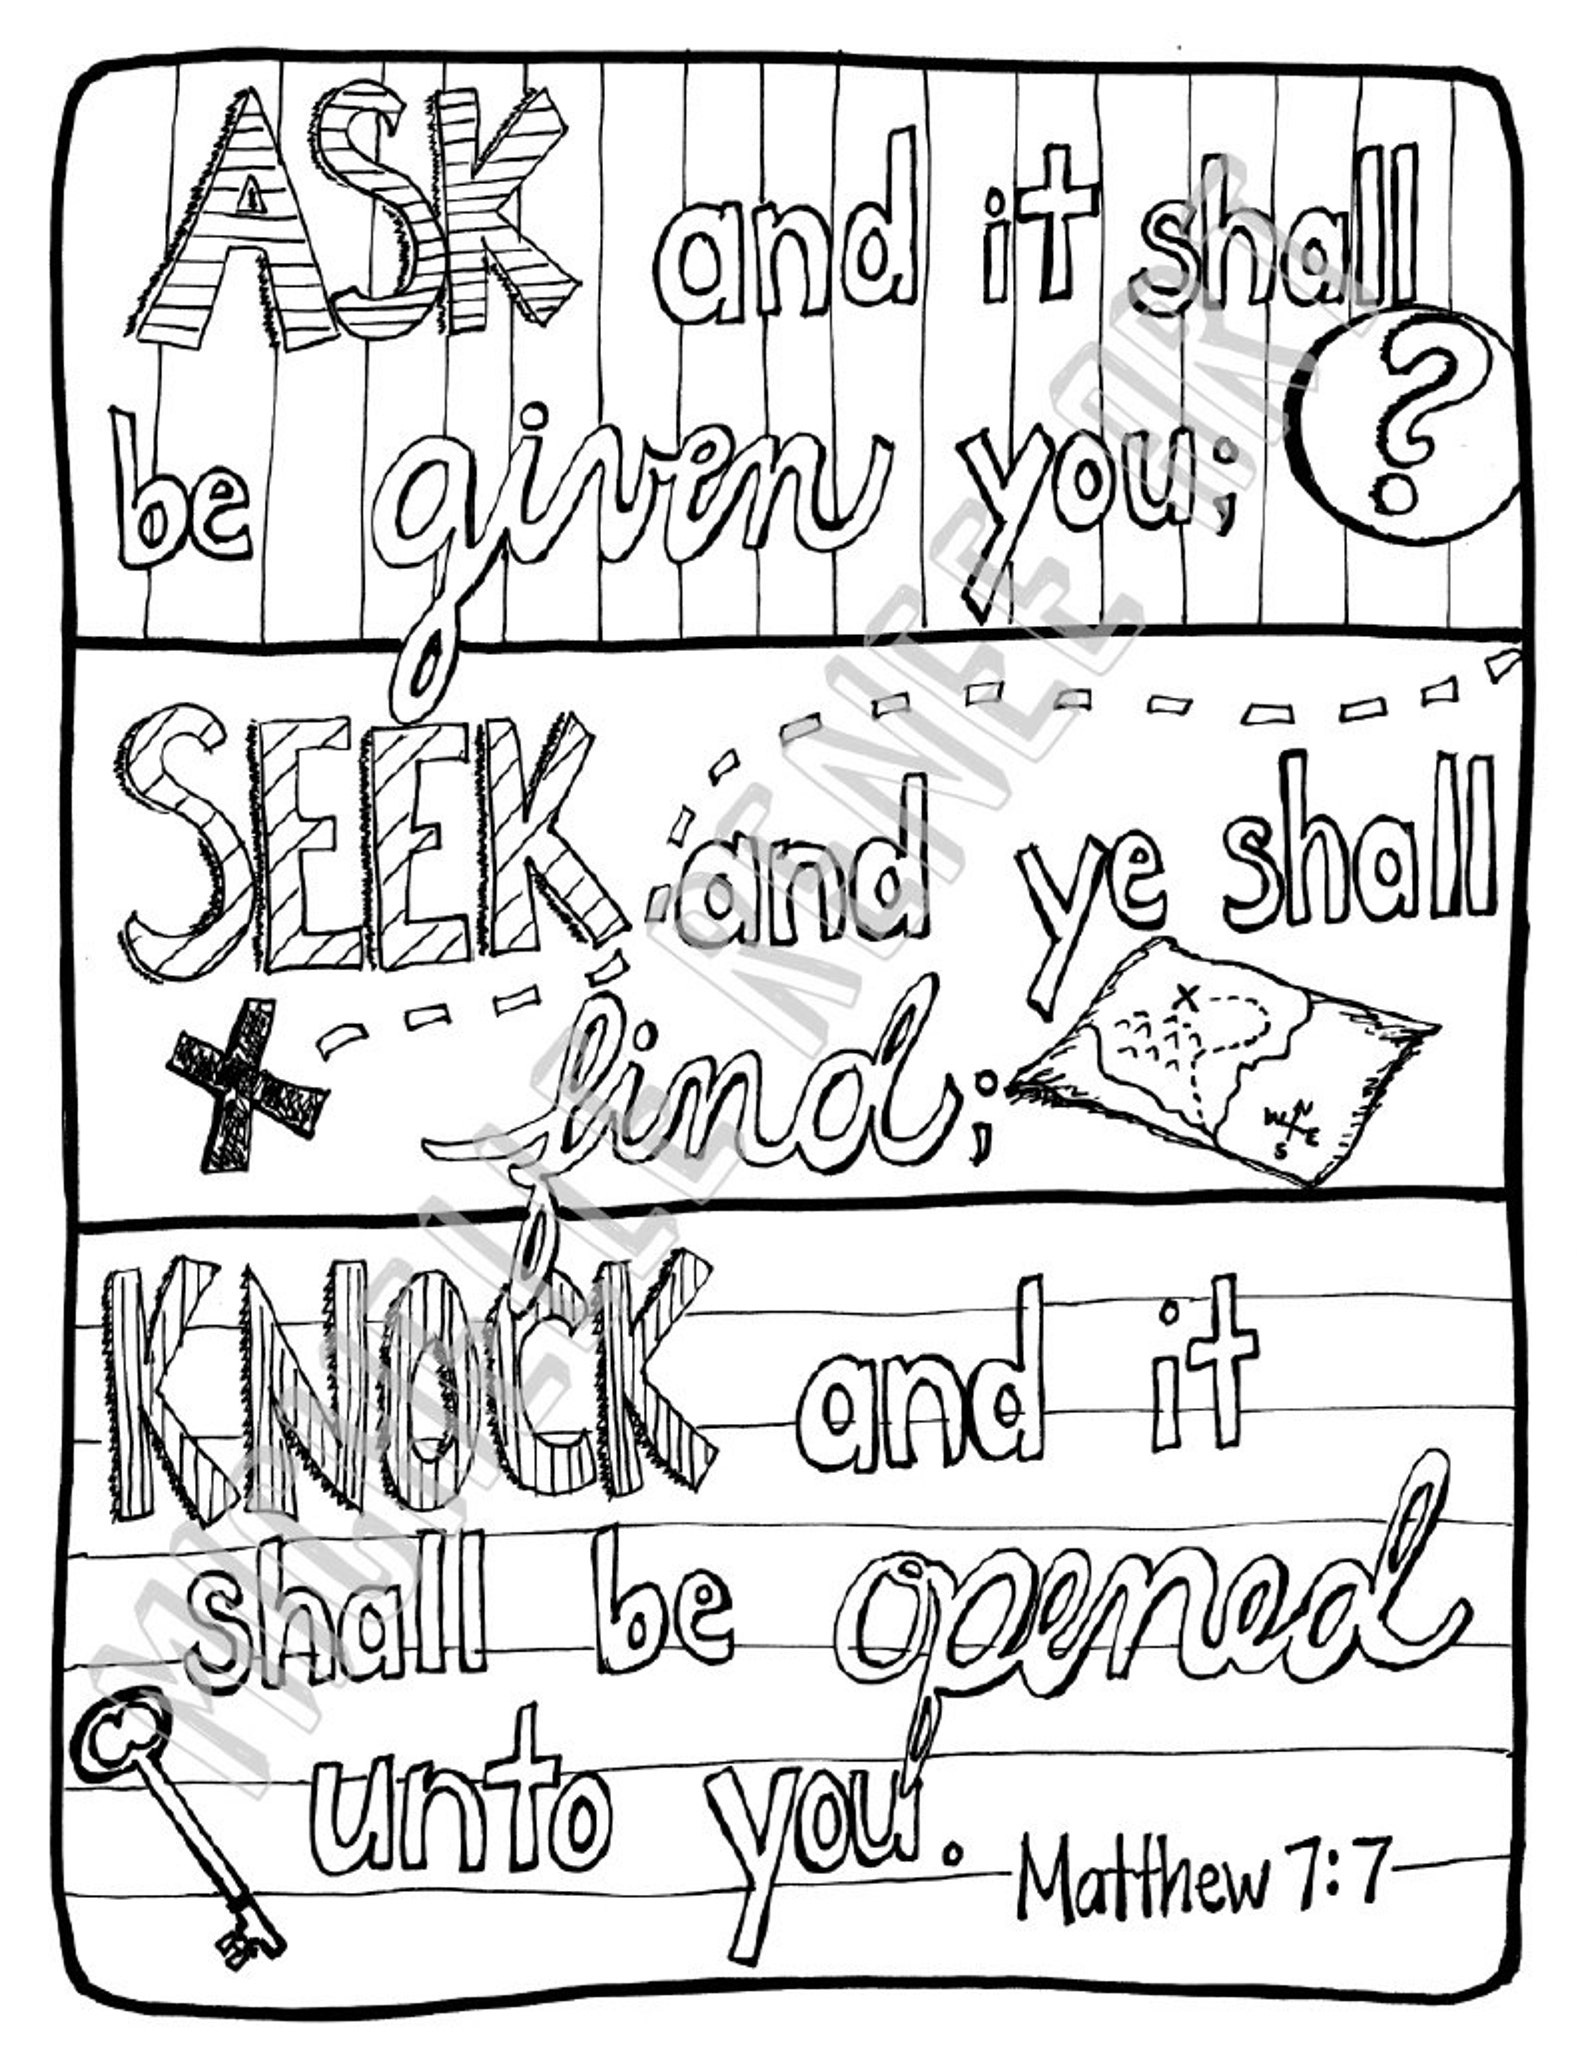 ASK and it shall
be given you;
?
SEEK and ye shall
find;
X
N
W E
S
KNOCK and it
shall be opened
unto you.
Matthew 7:7